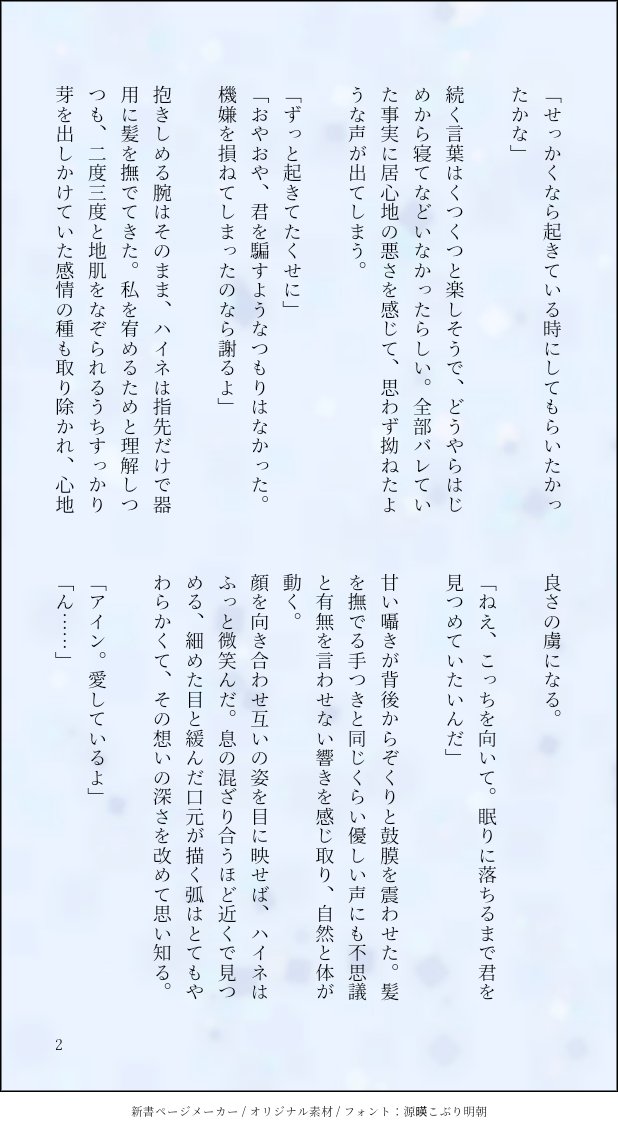 「せっかくなら起きている時にしてもらいたかっ
たかな」
続く言葉はくつくつと楽しそうで、どうやらはじ
めから寝てなどいなかったらしい。全部バレてい
た事実に居心地の悪さを感じて、思わず拗ねたよ
うな声が出てしまう。
「ずっと起きてたくせに」
「おやおや、君を騙すようなつもりはなかった。
機嫌を損ねてしまったのなら謝るよ」
抱きしめる腕はそのまま、ハイネは指先だけで器
用に髪を撫でてきた。私を宥めるためと理解しつ
つも、二度三度と地肌をなぞられるうちすっかり
芽を出しかけていた感情の種も取り除かれ、心地
良さの虜になる。
「ねえ、こっちを向いて。眠りに落ちるまで君を
見つめていたいんだ」
甘い囁きが背後からぞくりと鼓膜を震わせた。髪
を撫でる手つきと同じくらい優しい声にも不思議
と有無を言わせない響きを感じ取り、自然と体が
動く。
顔を向き合わせ互いの姿を目に映せば、ハイネは
ふっと微笑んだ。息の混ざり合うほど近くで見つ
める、細めた目と緩んだ口元が描く弧はとてもや
わらかくて、その想いの深さを改めて思い知る。
「アイン。愛しているよ」
「ん……」
2
新書ページメーカー / オリジナル素材 / フォント：源暎こぶり明朝